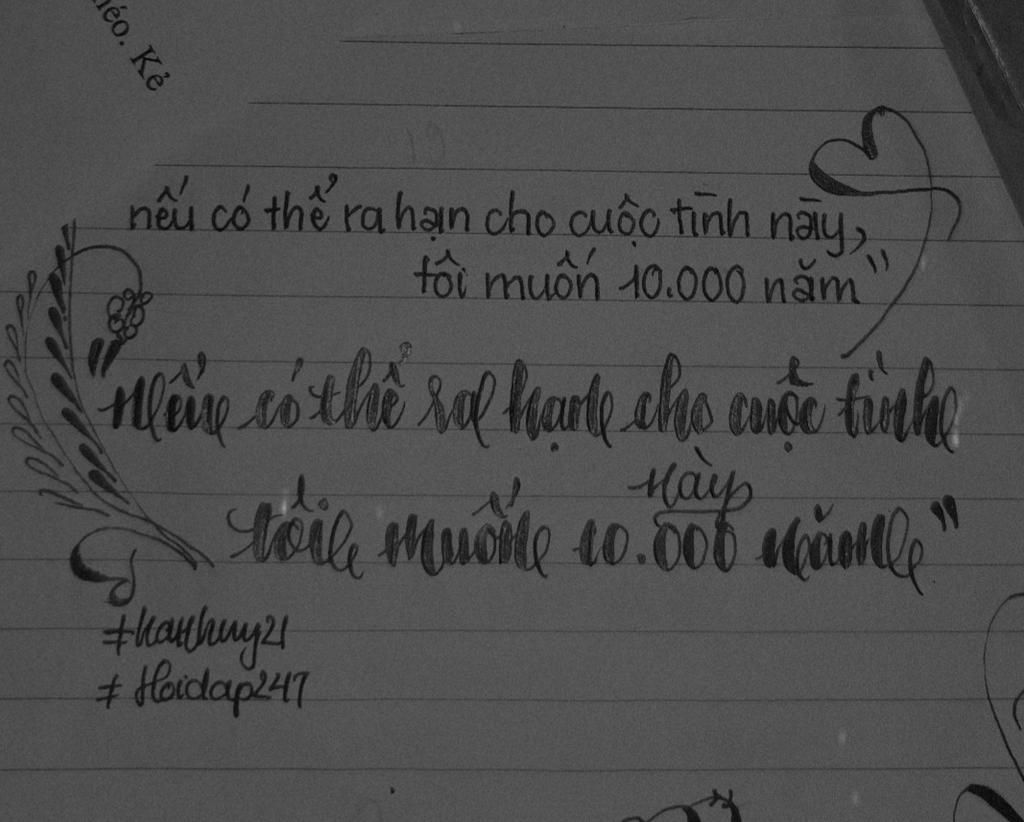 héo. Kẻ
nếu có thể ra hạn cho cuộc tình này,
tôi muốn 10.000 năm"
"Nếu có thể ra hạn cho cuộc tình
này
tôi muốn 10.000 năm"
#Hoidap247